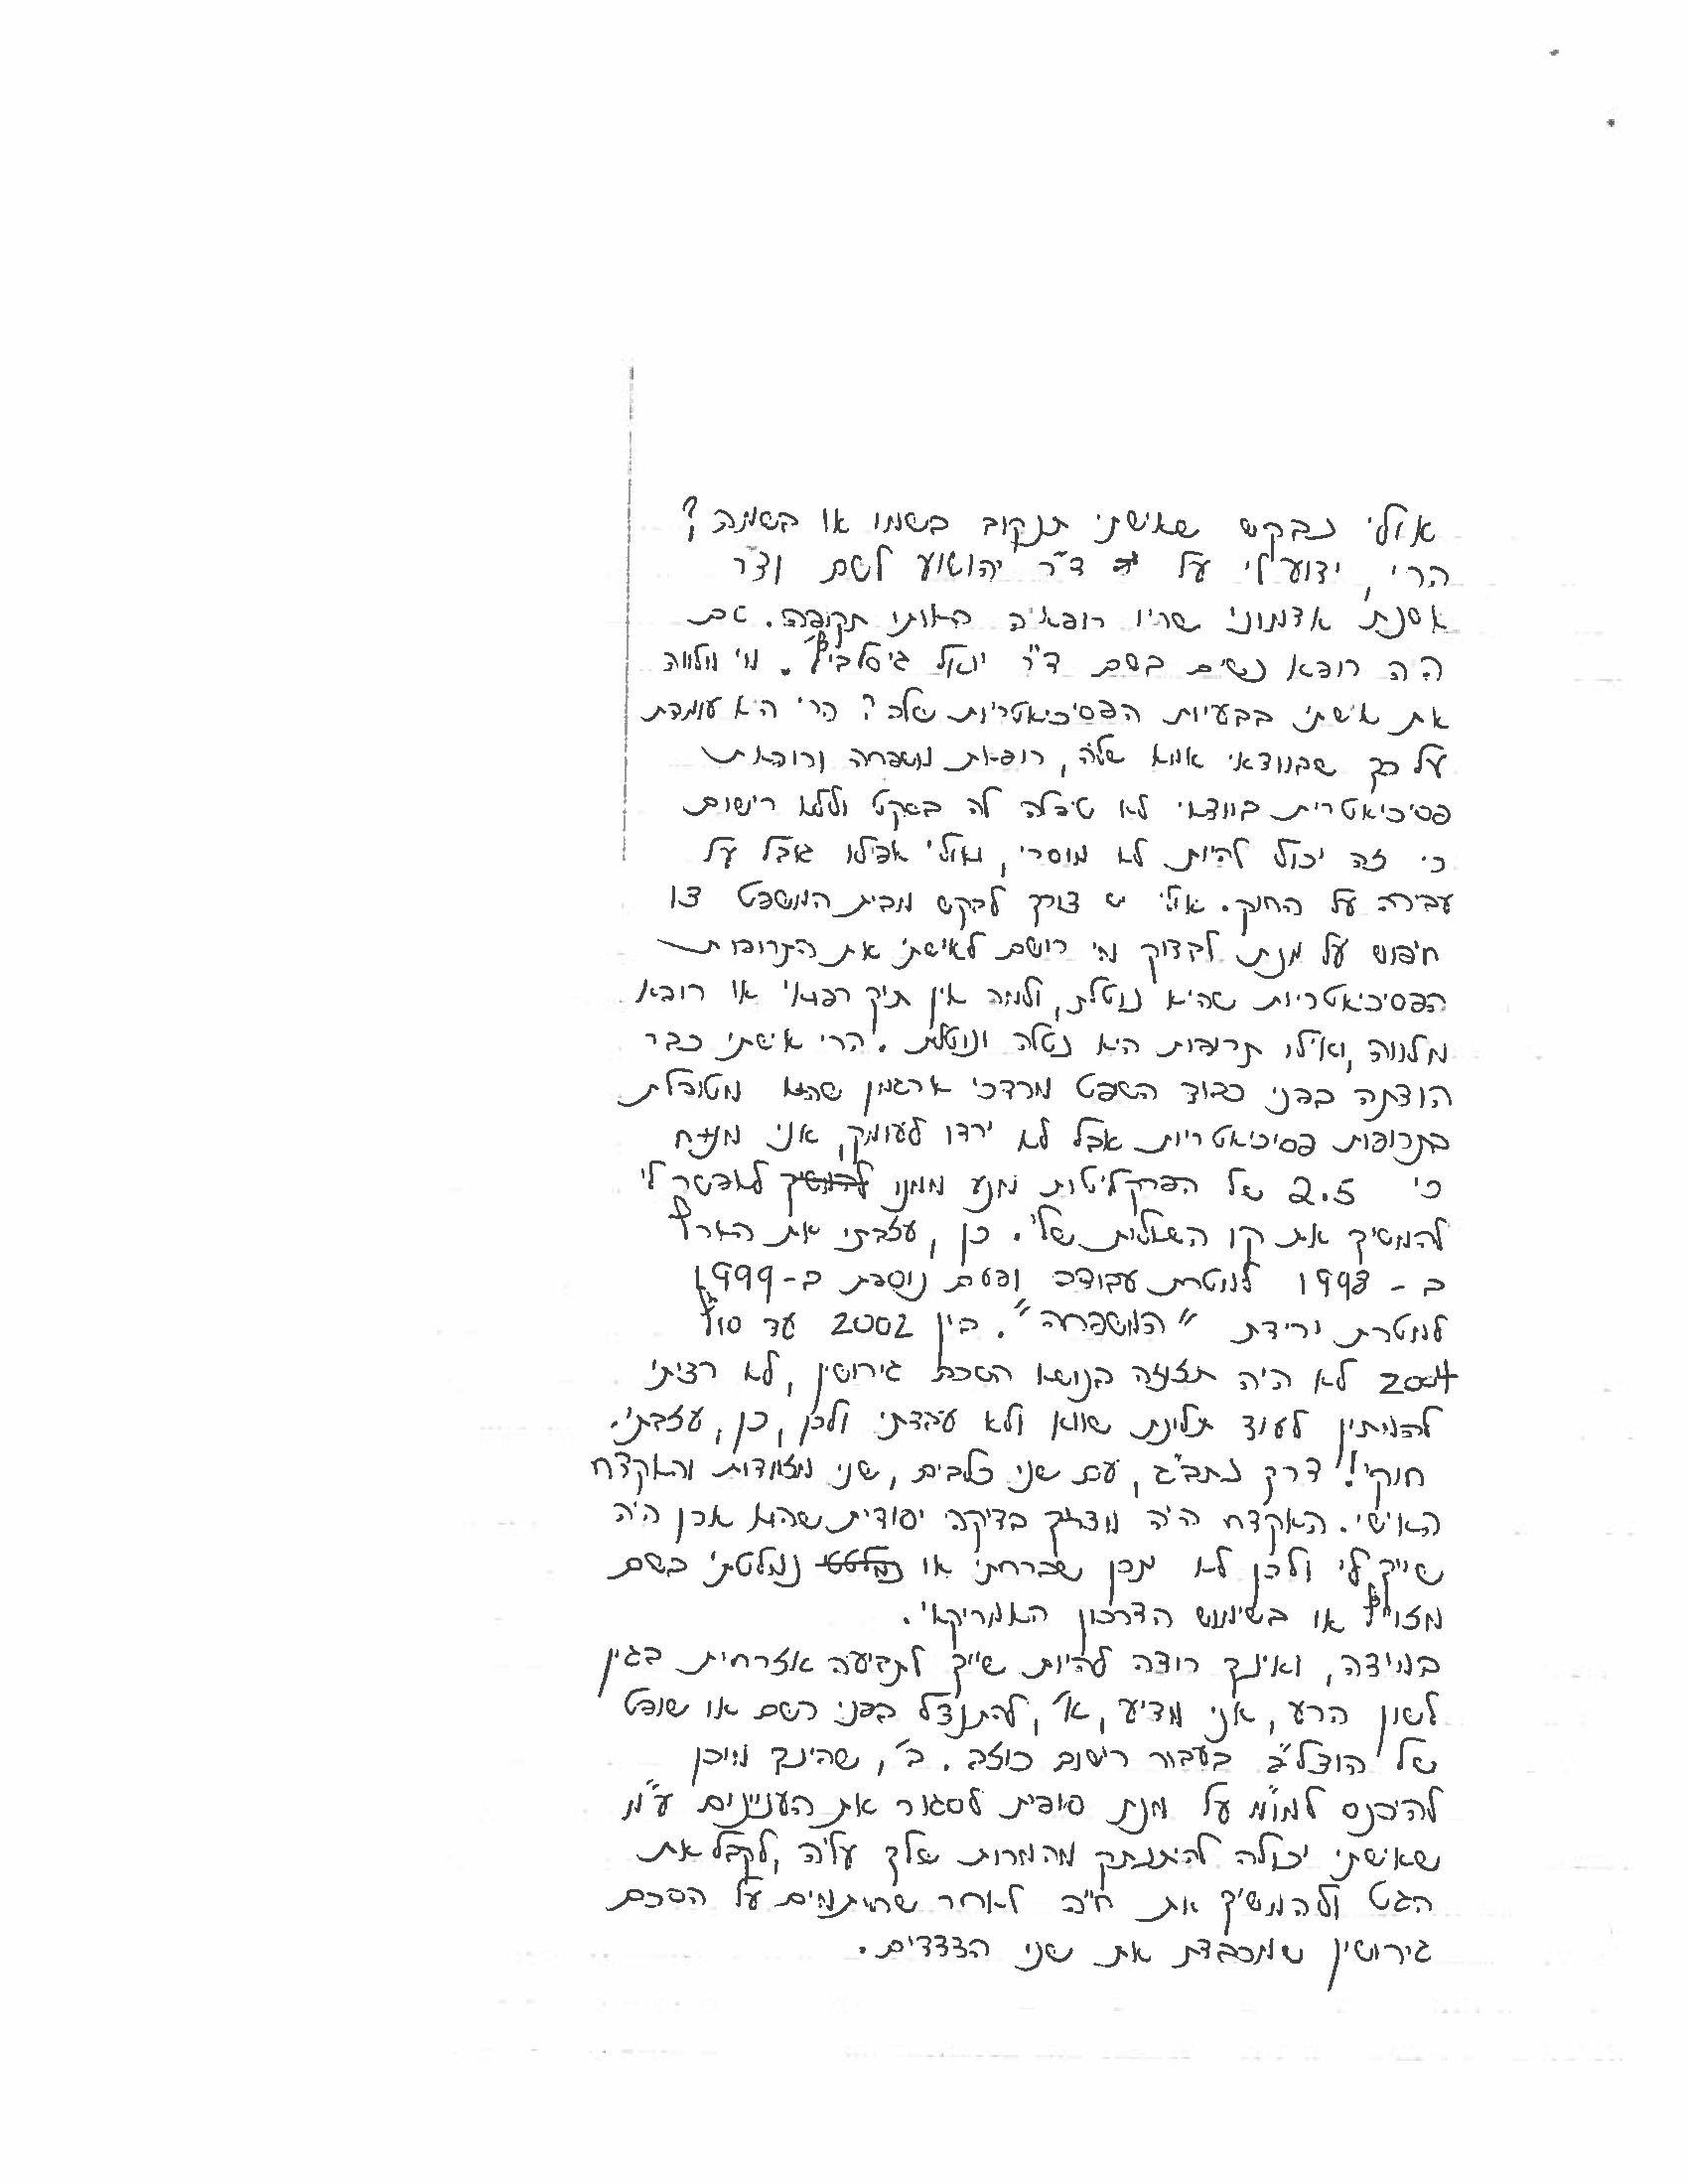 אולי נבקש שאישתי תנקוב בשמו או בשמה?
הרי, ידוע לי על ד"ר יהושוע לשם וד"ר
אסנת אדמוני שהיו רופאיה באותו תקופה. גם
היה רופא נשים בשם ד"ר יגאל . מי מלווה
את אישתי בבעיות הפסיכיאטריות שלה? הרי היא עומדת
על כך שבוודאי אמא שלה, רופאת משפחה ורופאת
פסיכיאטרית בוודאי לא טיפלה לה באקט וללא רישום
כי זה יכול להיות לא מוסרי, ואולי אפילו גובל על
עבירה על החוק. אולי יש צורך לבקש מבית המשפט צו
חיפוש על מנת לבדוק מי רושם לאישתי את התרופות
הפסיכיאטריות שהיא נוטלת, ולמה אין תיק רפואי או רופא
מלווה, ואילו תרופות היא נטלה ונוטלת. הרי אישתי כבר
הודתה בפני כבוד השפט מרדכי ארגמן שהיא מטופלת
בתרופות פסיכיאטריות אבל לא ירדו לעומק, אני מניח
כי 2.5 של הפרקליטות מנע ממנו להמשיך לאפשר לי
להמשיך את קו השאלות שלי. כן, עזבתי את הארץ
ב - 1998 למטרת עבודה ופעם נוספת ב-1999
למטרת ירידת "המשפחה". בין 2002 עד סוף
2004 לא היה תזוזה בנושא הסכם גירושין, לא רציתי
להמיתין לעוד תלונת שווא ולא עבדתי ולכן, כן, עזבתי.
חוקי! דרך נתב"ג, עם שני כלבים, שני מזוודות והאקדח
האישי. האקדח היה מצריך בדיקה יסודית שהוא אכן היה
שייך לי ולכן לא יתכן שברחתי או נמלטתי בשם
מזוייף או בשימוש הדרכון האמריקאי.
במידה, ואינך רוצה להיות שייך לתביעה אזרחית בגין
לשון הרע, אני מדיע, א', להתנצל בפני רשם או שופט
של הוצל"פ בעבור רישום כוזב. ב', שהינך מוכן
להיכנס למו"מ על מנת סופית לסגור את העניינים ע"מ
שאישתי יכולה להיתנתק מהמרות שלך עליה, לקבל את
הגט ולהמשיך את חייה לאחר שחיתמים על הסכם
גירושין שמכבדת את שני הצדדים.